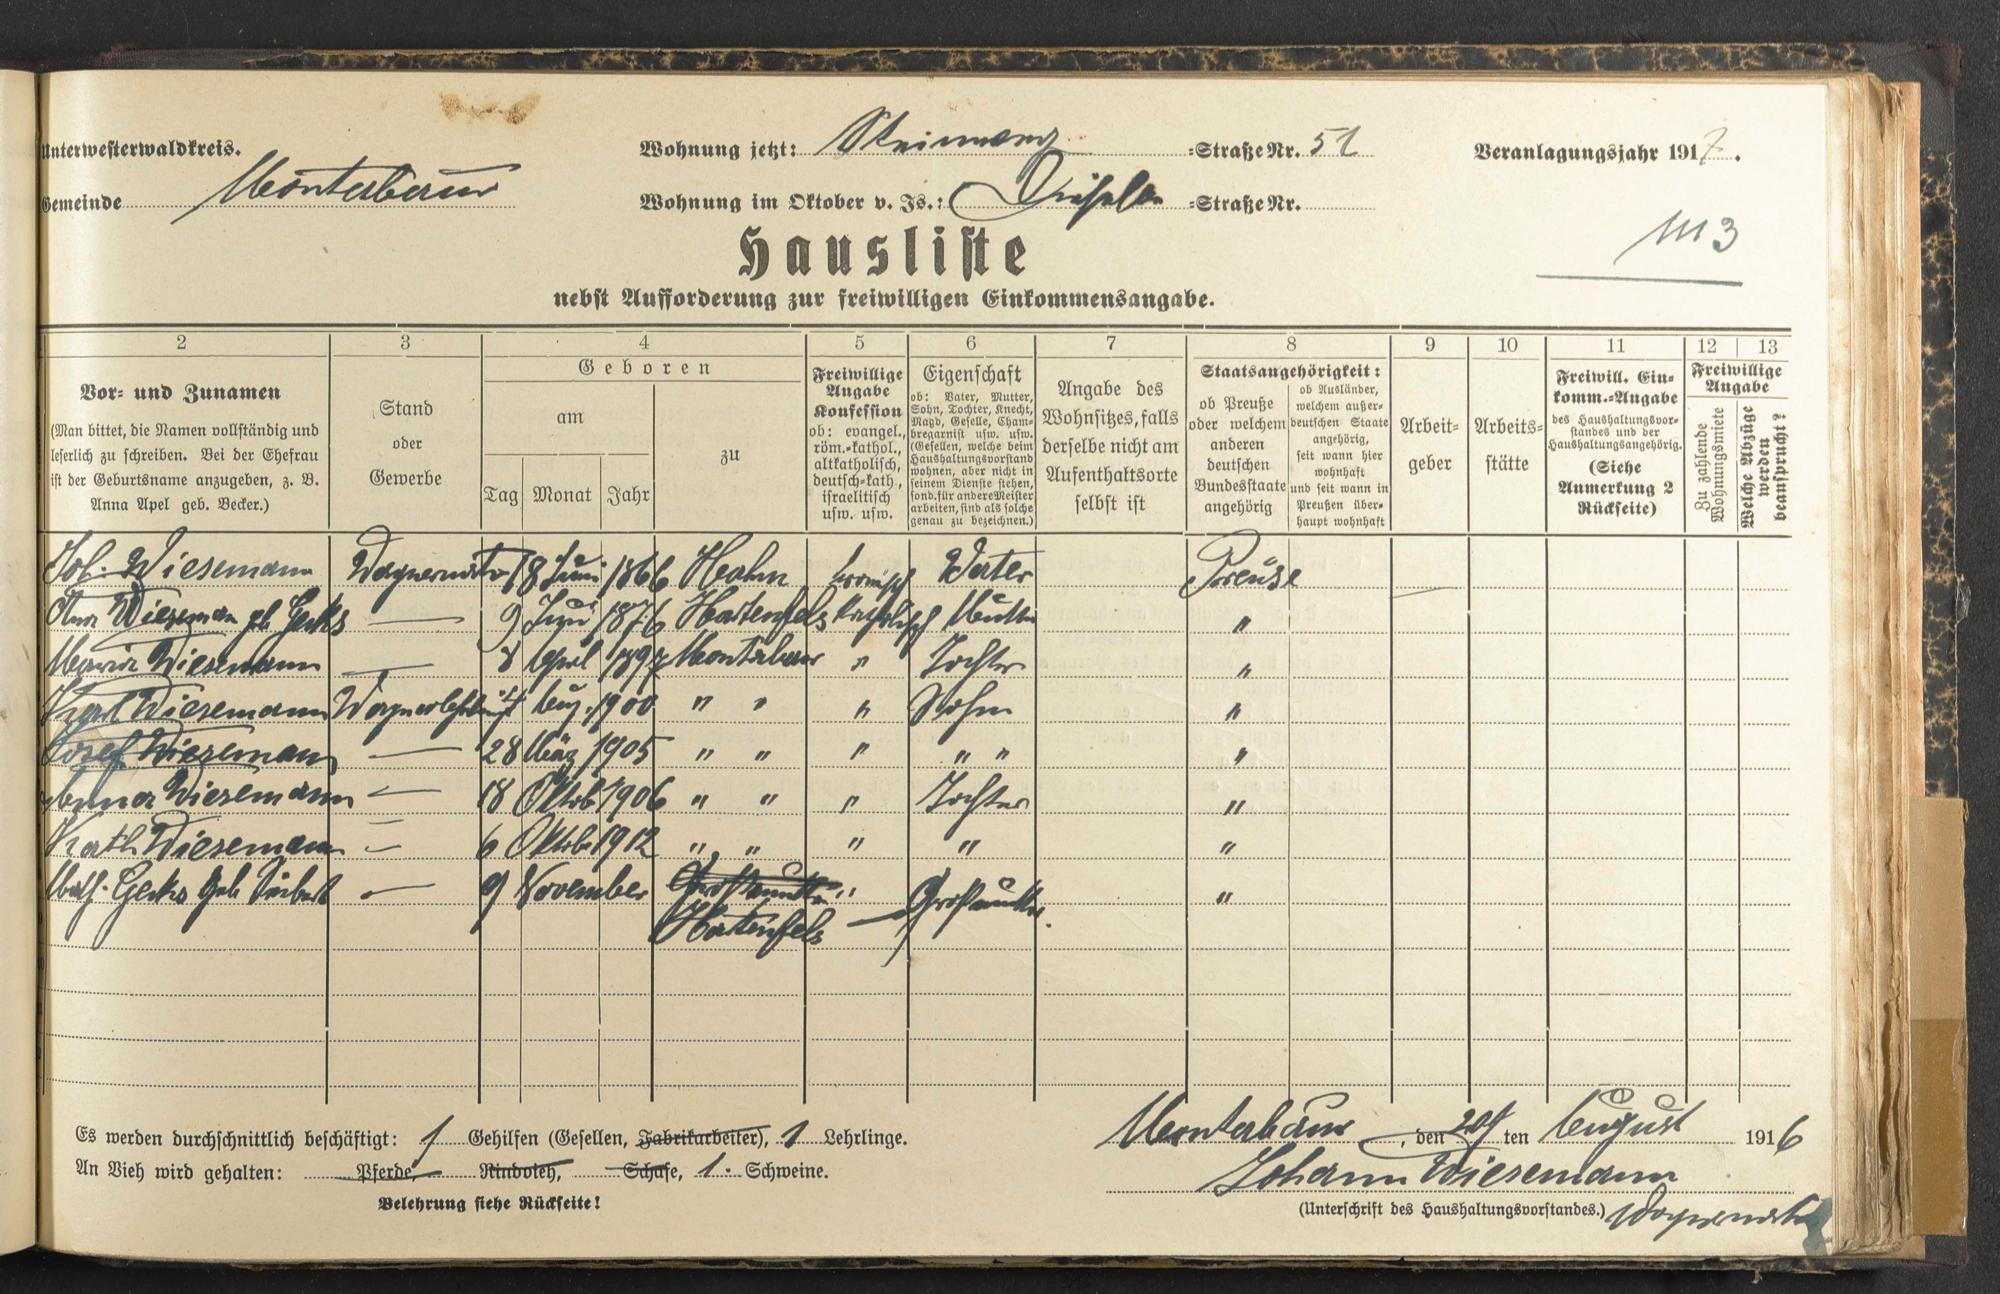 Unterwesterwaldkreis.
Wohnung jetzt: =Straße Nr. 51
Veranlagungsjahr 1917.
Gemeinde Montabaur
Wohnung im Oktober v. Js.: =Straße Nr.
M 3
Hausliste
nebst Aufforderung zur freiwilligen Einkommensangabe.
2 3 4 5 6 7 8 9 10 11 12 13
Vor= und Zunamen
(Man bittet, die Namen vollständig und
leserlich zu schreiben. Bei der Ehefrau
ist der Geburtsname anzugeben, z. B.
Anna Apel geb. Becker.)
Stand
oder
Gewerbe
Geboren
am
Tag Monat Jahr
zu
Freiwillige
Angabe
Konfession
ob: evangel.,
röm.=kathol.,
altkatholisch,
deutsch=kath.,
israelitisch
usw. usw.
Eigenschaft
ob: Vater, Mutter,
Sohn, Tochter, Knecht,
Magd, Geselle, Cham=
bregarnist usw. usw.
(Gesellen, welche beim
Haushaltungsvorstand
wohnen, aber nicht in
seinem Dienste stehen,
sond. für andere Meister
arbeiten, sind als solche
genau zu bezeichnen.)
Angabe des
Wohnsitzes, falls
derselbe nicht am
Aufenthaltsorte
selbst ist
Staatsangehörigkeit:
ob Preuße
oder welchem
anderen
deutschen
Bundesstaate
angehörig
ob Ausländer,
welchem außer=
deutschen Staate
angehörig,
seit wann hier
wohnhaft
und seit wann in
Preußen über=
haupt wohnhaft
Arbeit=
geber
Arbeits=
stätte
Freiwill. Ein=
komm.=Angabe
des Haushaltungsvor=
standes und der
Haushaltungsangehörig.
(Siehe
Anmerkung 2
Rückseite)
Freiwillige
Angabe
Zu zahlende
Wohnungsmiete
Welche Abzüge
werden
beansprucht?
Joh. Wiesemann Wagnermstr 18 Juni 1866 Hahn römisch Vater Preuße
Wiesemann gb Gerks — 9 Juni 1876 Hartenfels katholisch Mutter "
Maria Wiesemann — 8 April 1897 Montabaur " Tochter "
Karl Wiesemann Wagnerlehrling 14 Aug. 1900 " " " Sohn "
Josef Wiesemann — 28 März 1905 " " " " " "
Anna Wiesemann — 18 Oktob 1906 " " " Tochter "
Kath Wiesemann — 6 Oktob 1912 " " " " "
Gerks Geb — 9 November Großmutter " Großmutter. "
Hartenfels —
Es werden durchschnittlich beschäftigt: 1 Gehilfen (Gesellen, Fabrikarbeiter), 1 Lehrlinge.
An Vieh wird gehalten: Pferde, Rindvieh, Schafe, 1. Schweine.
Belehrung siehe Rückseite!
Montabaur, den 29 ten August 1916
Johann Wiesemann
(Unterschrift des Haushaltungsvorstandes.) Wagnermstr